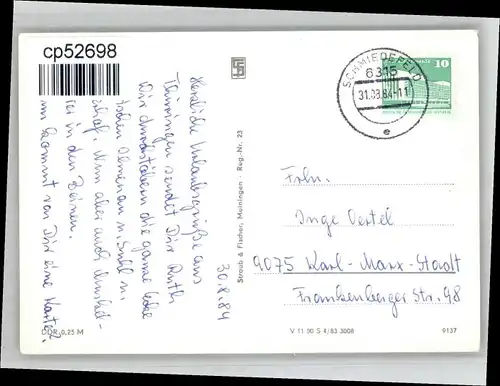 cp52698
Herzliche Urlaubsgrüße aus
Thüringen sendet Dir Ruth
Wir durchstöbern die ganze Ecke
zwischen Ilmenau u. Suhl u.
Nun aber auch
rei in den Beinen.
kommt von Dir eine Karte?
30.8.84
DDR 0,25 M
Straub & Fischer, Meiningen · Reg.-Nr. 23
SCHMIEDEFELD
6315
31.08.84-11
e
10
Frln.
Inge Oertel
9075 Karl-Marx-Stadt
Frankenberger Str. 98
V 11 90 S 4/83 3008
9137